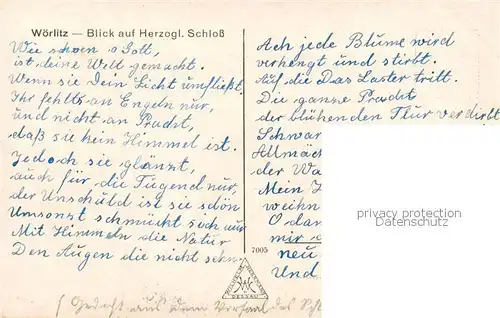 Wörlitz — Blick auf Herzogl. Schloß
Wie schoen o Gott,
ist deine Welt gemacht.
Wenn sie Dein Licht umfließt,
Ihr fehlts an Engeln nur,
und nicht an Pracht,
daß sie kein Himmel ist.
Jedoch sie glänzt,
auch für die Tugend nur,
der Unschuld ist sie schön
Umsonst schmückt sich nur
Mit Himmeln die Natur
Den Augen die nicht sehn.
Ach jede Blume wird
verhengt und stirbt.
Auf die Das Laster tritt.
Die ganze Pracht
der blühenden Flur verdirbt
Schwar
Allmäch
der Wa
Mein
weihn
O dan
mir
neu
Und
privacy protection
Datenschutz
7005
DESSAU
(Gedicht aus dem Vorsaal des